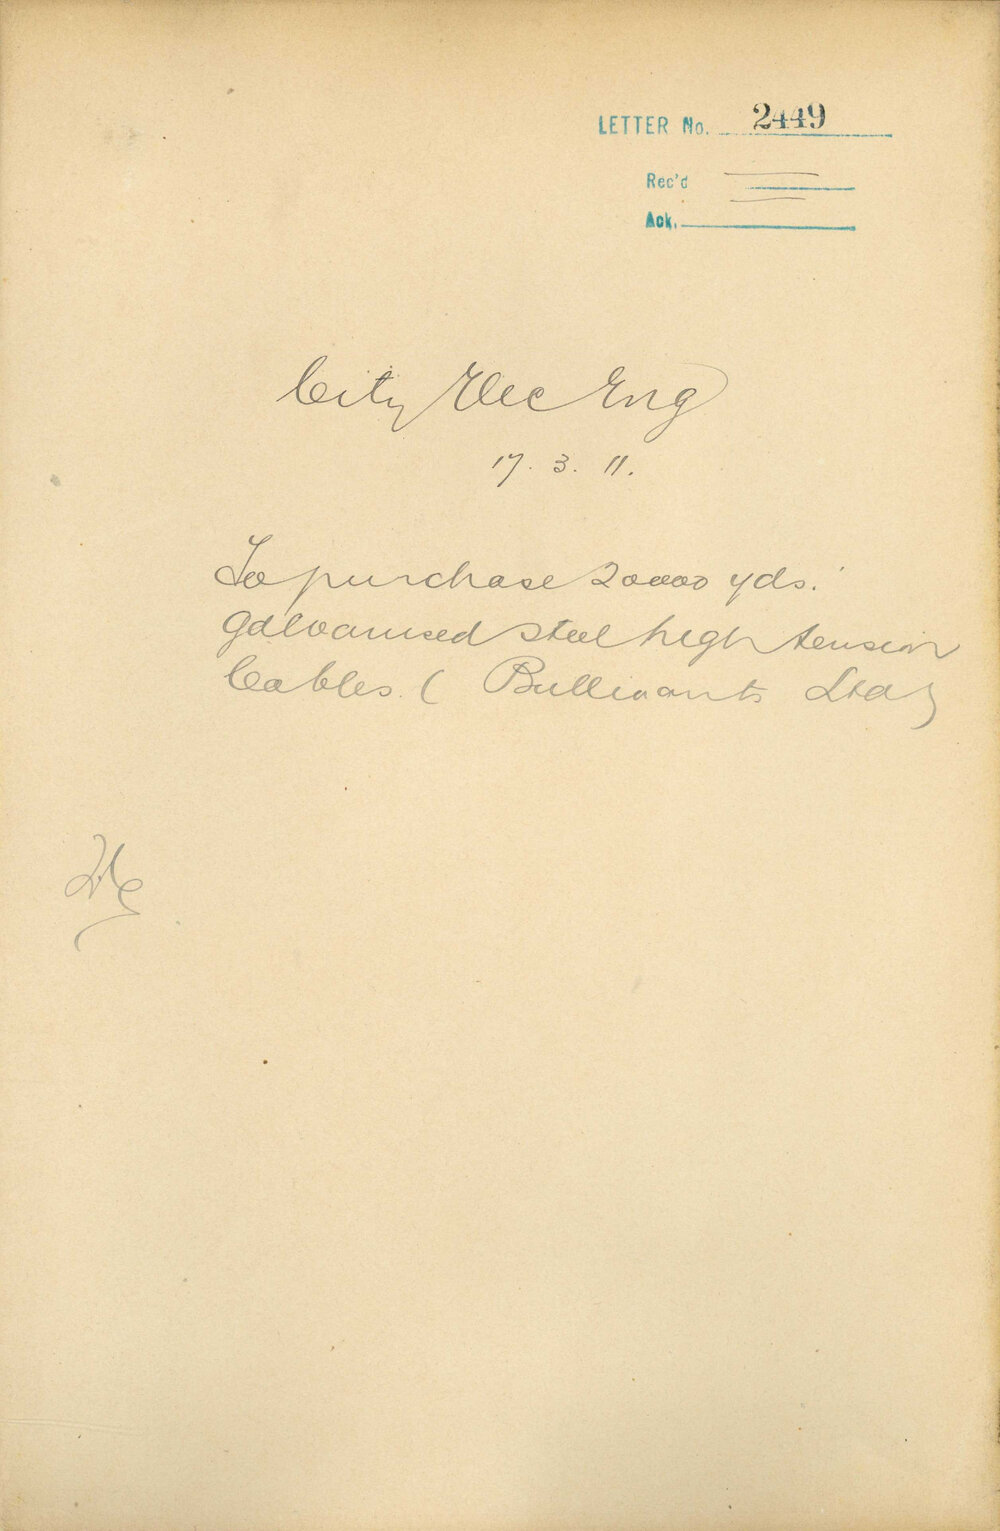 LETTER No. 2449
Rec'd
Ack.
City Elec Eng
17. 3. 11.
To purchase 20000 yds.
galvanised steel high tension
Cables. (Bullivants Ltd)